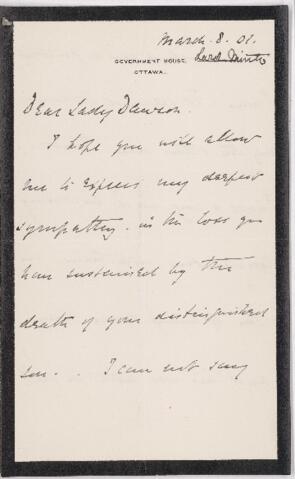 March. 8. 01.
GOVERNMENT HOUSE. Lord Minto
OTTAWA.
Dear Lady Dawson.
I hope you will allow
me to express my deepest
sympathy. in the loss you
have sustained by the
death of your distinguished
son. . I can not say